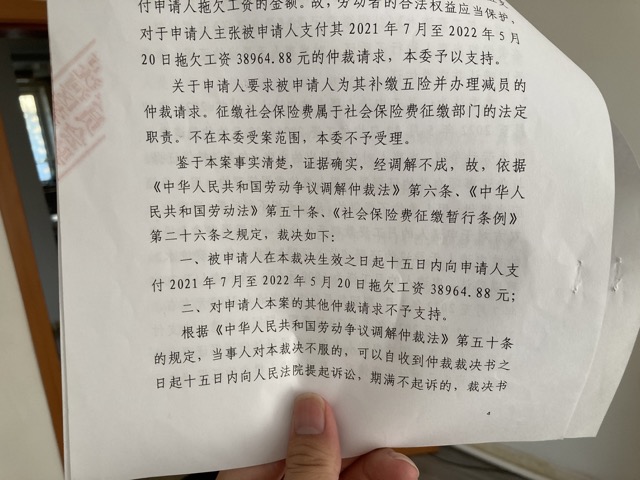 付申请人拖欠工资的金额。故，劳动者的合法权益应当保护，
对于申请人主张被申请人支付其 2021 年 7 月至 2022 年 5 月
20 日拖欠工资 38964.88 元的仲裁请求，本委予以支持。
关于申请人要求被申请人为其补缴五险并办理减员的
仲裁请求。征缴社会保险费属于社会保险费征缴部门的法定
职责。不在本委受案范围，本委不予受理。
鉴于本案事实清楚，证据确实，经调解不成，故，依据
《中华人民共和国劳动争议调解仲裁法》第六条、《中华人
民共和国劳动法》第五十条、《社会保险费征缴暂行条例》
第二十六条之规定，裁决如下：
一、被申请人在本裁决生效之日起十五日内向申请人支
付 2021 年 7 月至 2022 年 5 月 20 日拖欠工资 38964.88 元；
二、对申请人本案的其他仲裁请求不予支持。
根据《中华人民共和国劳动争议调解仲裁法》第五十条
的规定，当事人对本裁决不服的，可以自收到仲裁裁决书之
日起十五日内向人民法院提起诉讼，期满不起诉的，裁决书
4